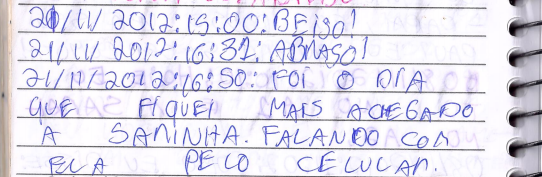 20/11/2012:15:00:BEIJO!
21/11/2012:16:31:ABRASO!
21/11/2012:16:50: FOI O DIA
QUE FIQUEI MAIS ACHEGADO
A SAMINHA. FALANDO COM
ELA PELO CELULAR.